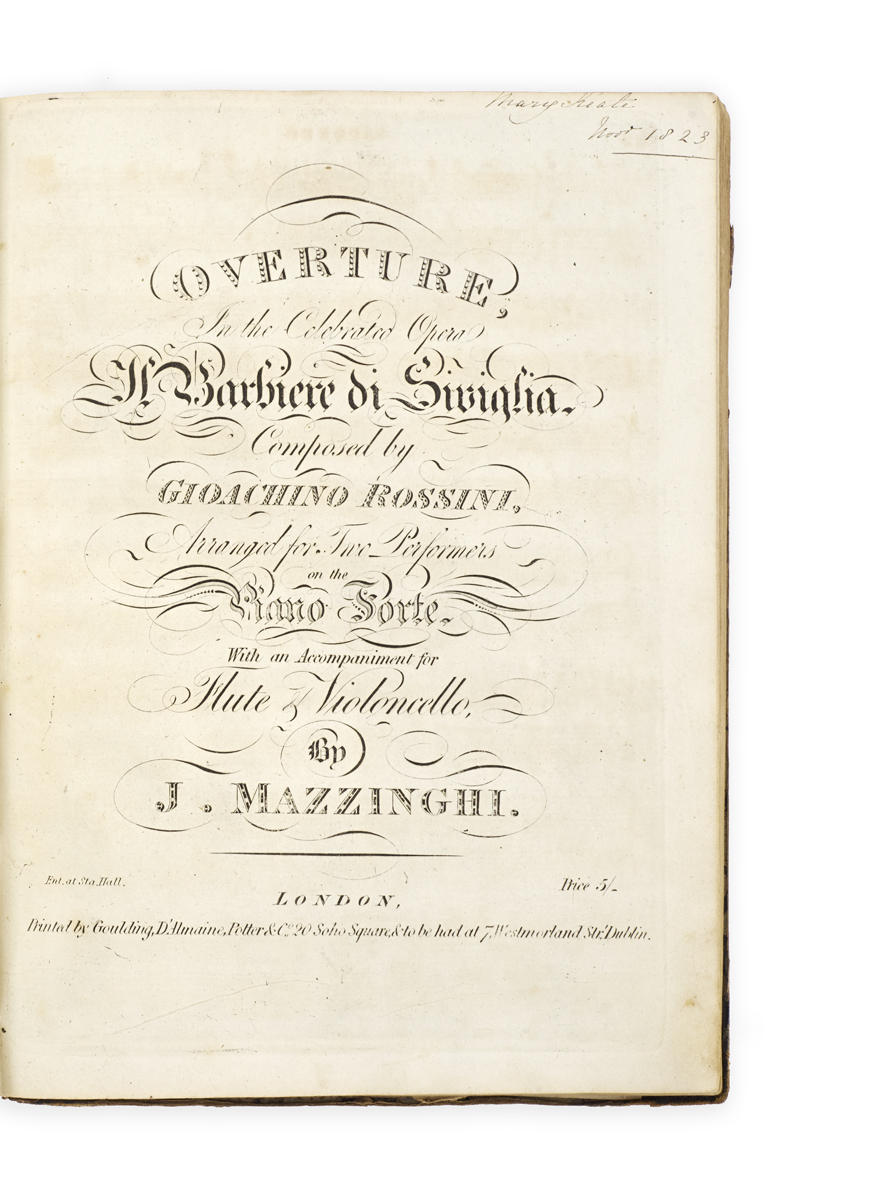 Mary Keate
Novr 1823
OVERTURE,
In the Celebrated Opera
Il Barbiere di Siviglia.
Composed by
GIOACHINO ROSSINI,
Arranged for Two Performers
on the
Piano Forte.
With an Accompaniment for
Flute & Violoncello,
By
J. MAZZINGHI.
Ent. at Sta. Hall.
Price 5/-
LONDON,
Printed by Goulding, D'Almaine, Potter & Co. 20 Soho Square, & to be had at 7, Westmorland Str. Dublin.